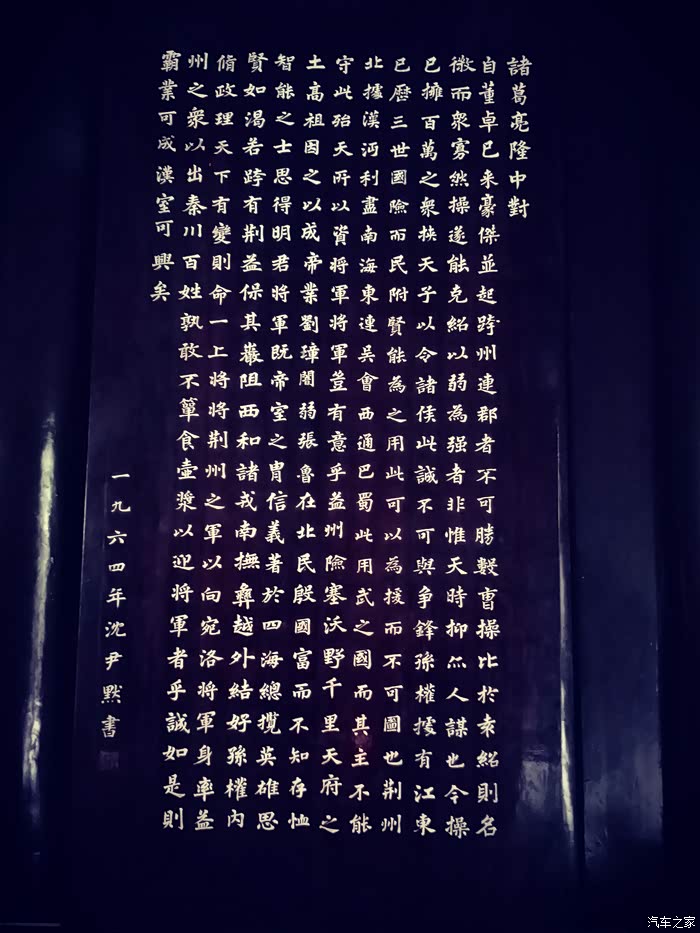 諸葛亮隆中對
自董卓已来豪傑並起跨州連郡者不可勝數曹操比於袁紹則名
微而衆寡然操遂能克紹以弱為强者非惟天時抑亦人謀也今操
已擁百萬之衆挾天子以令諸侯此誠不可與争鋒孫權據有江東
已歷三世國險而民附賢能為之用此可以為援而不可圖也荆州
北據漢沔利盡南海東連吳會西通巴蜀此用武之國而其主不能
守此殆天所以資将軍将軍豈有意乎益州險塞沃野千里天府之
土高祖因之以成帝業劉璋闇弱張魯在北民殷國富而不知存恤
智能之士思得明君将軍既帝室之胄信義著於四海總攬英雄思
賢如渴若跨有荆益保其巖阻西和諸戎南撫彝越外結好孫權内
脩政理天下有變則命一上将将荆州之軍以向宛洛将軍身率益
州之衆以出秦川百姓孰敢不簞食壷漿以迎将軍者乎誠如是則
霸業可成漢室可興矣
一九六四年沈尹默書
汽车之家